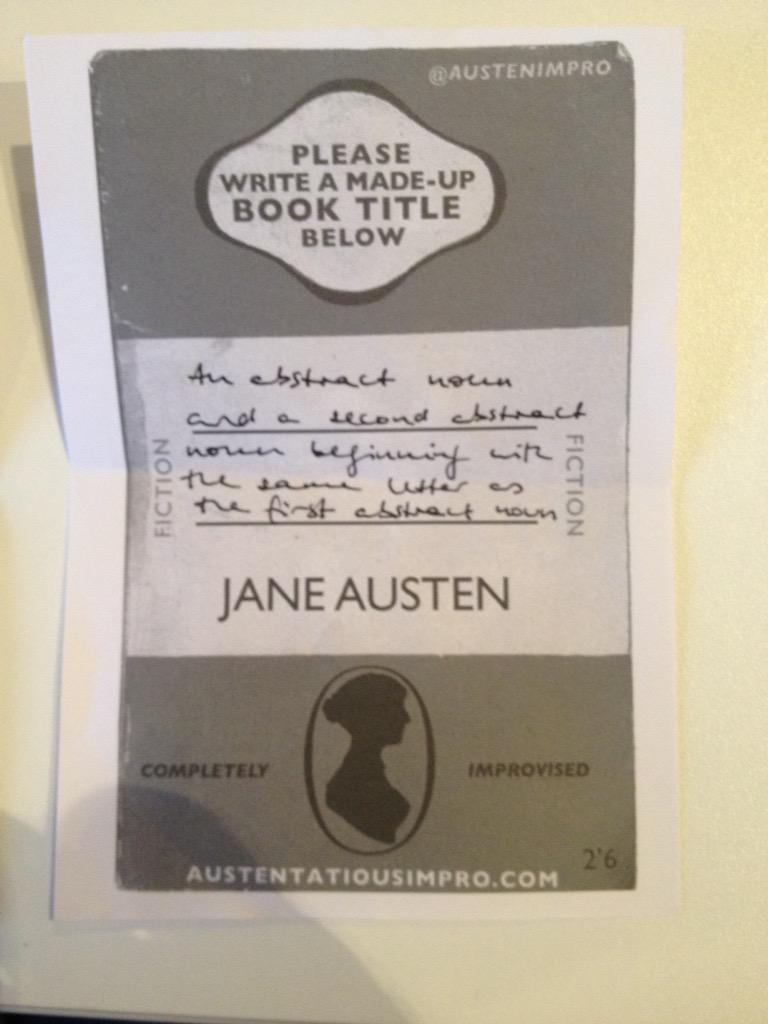 @AUSTENIMPRO
PLEASE
WRITE A MADE-UP
BOOK TITLE
BELOW
An abstract noun
and a second abstract
noun beginning with
the same letter as
the first abstract noun
FICTION
FICTION
JANE AUSTEN
COMPLETELY
IMPROVISED
2'6
AUSTENTATIOUSIMPRO.COM